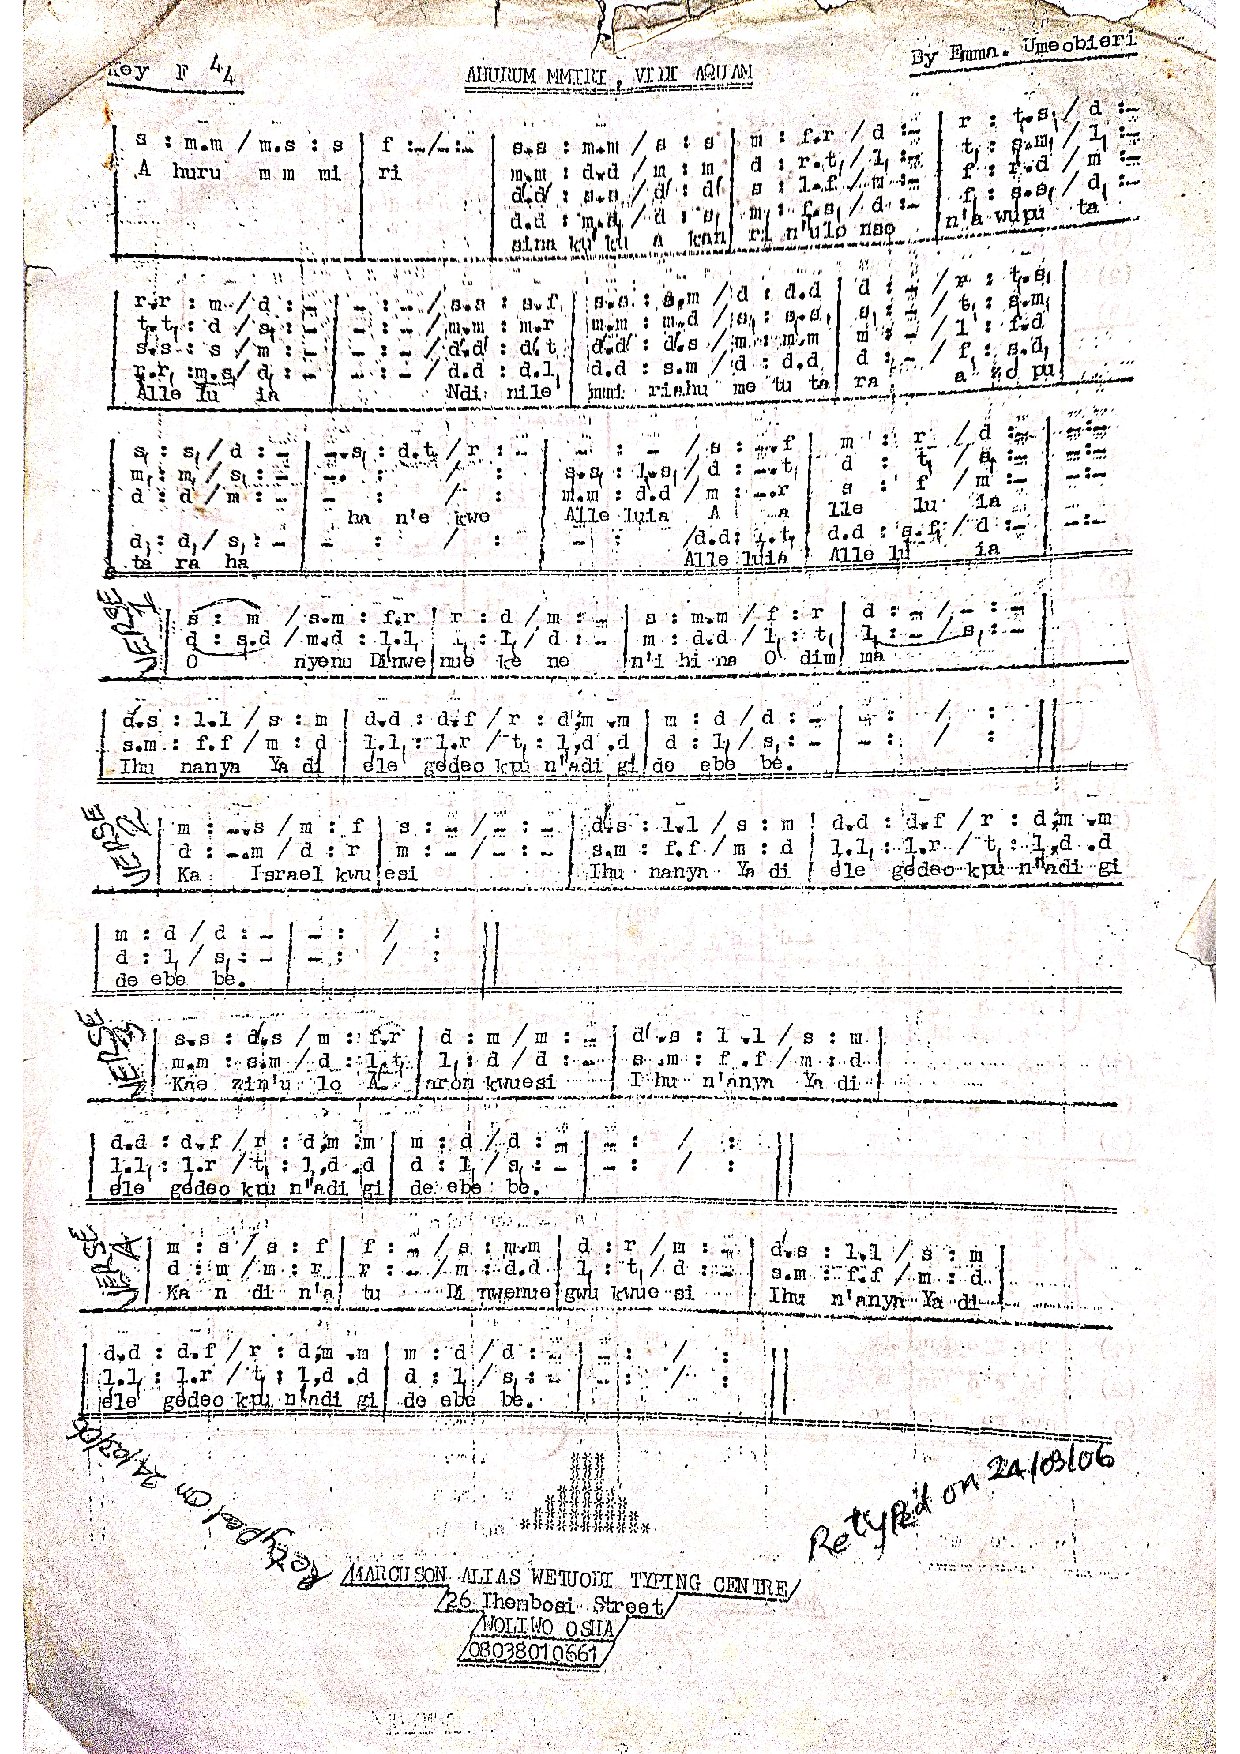 Key F 44
By Emma. Umeobieri
AHURUM MMIRI, VIDI AQUAM
s : m.m / m.s : s | f :-/-:- | s.s : m.m / s : s | m : f.r / d :- | r : t.s, / d :-
A huru m m mi | ri | m.m : d.d / m : m | d : r.t, / l, :- | t, : s,m, / l, :-
d'.d' : s.s / d' : d' | s : l.f / m :- | f : r.d / m :-
d.d : m.d / d : s, | m, : f.s, / d :- | f, : s,.s, / d, :-
sina ku ku A kan | ri n'ulo nso | n'a wupu ta
r.r : m / d : - | - : - / s.s : s.f | s.s : s.m / d : d.d | d : - / r : t.s,
t,.t, : d / s, : - | - : - / m.m : m.r | m.m : m.d / s, : s,.s, | s, : - / t, : s.m,
s.s : s / m : - | - : - / d'.d' : d'.t | d'.d' : d'.s / m : m.m | m : - / l : f.d
r.r, : m.s / d, : - | - : - / d.d : d.l, | d.d : s.m / d : d.d | d : - / f, : s.d,
Alle lu ia | Ndi nile | mmi riahu me tu ta | ra a no pu
s, : s, / d : - | -.s, : d.t, / r : - | - : - / s : -.f | m : r / d :- | -:-
m, : m, / s, : - | -. : / : | s.s : l.s, / d : -.t, | d : t, / s, :- | -:-
d : d / m : - | - : / : | m.m : d.d / m : -.r | s : f / m :-
ha n'e kwe | Alle luia A a | lle lu ia
d, : d, / s, : - | - : / : | - : /d.d : s.t, | d.d : s.f, / d :- | -:-
ta ra ha | Alle luia | Alle lu ia
VERSE 1
s : m / s.m : f.r | r : d / m : - | s : m.m / f : r | d : - / - : -
d : s.d / m.d : l.l | l, : l, / d : - | m : d.d / l, : t, | l, : - / s, : -
O nyenu Dinwe|nue ke ne | n'i hi na O dim | ma
d.s : l.l / s : m | d.d : d.f / r : d,m .m | m : d / d : - | - : / : ||
s.m : f.f / m : d | l.l, : l.r / t, : l,d .d | d : l, / s, : - | - : / : ||
Ihu nanya Ya di | ele gedeo kpu n"adi gi | de ebe be.
VERSE 2
m : -.s / m : f | s : - / - : - | d'.s : l.l / s : m | d.d : d.f / r : d,m .m
d : -.m / d : r | m : - / - : - | s.m : f.f / m : d | l.l, : l.r / t, : l,d .d
Ka Israel kwu|esi | Ihu nanya Ya di | ele gedeo kpu n"adi gi
m : d / d : - | - : / : ||
d : l, / s, : - | - : / : ||
de ebe be.
VERSE 3
s.s : d'.s / m : f.r | d : m / m : - | d'.s : l .l / s : m
m.m : s.m / d : l.t, | l, : d / d : - | s .m : f .f / m : d
Kae zin'u lo A | aron kwuesi | Ihu n'anya Ya di
d.d : d.f / r : d,m :m | m : d / d : - | - : / : ||
l.l, : l.r / t, : l,d .d | d : l, / s, : - | - : / : ||
ele gedeo kpu n"adi gi | de ebe be.
VERSE 4
m : s / s : f | f : - / s : m.m | d : r / m : - | d'.s : l.l / s : m
d : m / m : r | r : - / m : d.d | l, : t, / d : - | s.m : f.f / m : d
Ka n di n'a | tu Di nwenue|gwu kwue si | Ihu n'anya Ya di
d.d : d.f / r : d,m .m | m : d / d : - | - : / : ||
l.l : l.r / t, : l,d .d | d : l, / s, : - | - : / : ||
ele gedeo kpu n'adi gi | de ebe be.
Retyped on 24/03/06
Retyped on 24/03/06
MARCUSON ALIAS WETUODI TYPING CENTRE
26 Ihembosi Street
WOLIWO OSHA
08038010661